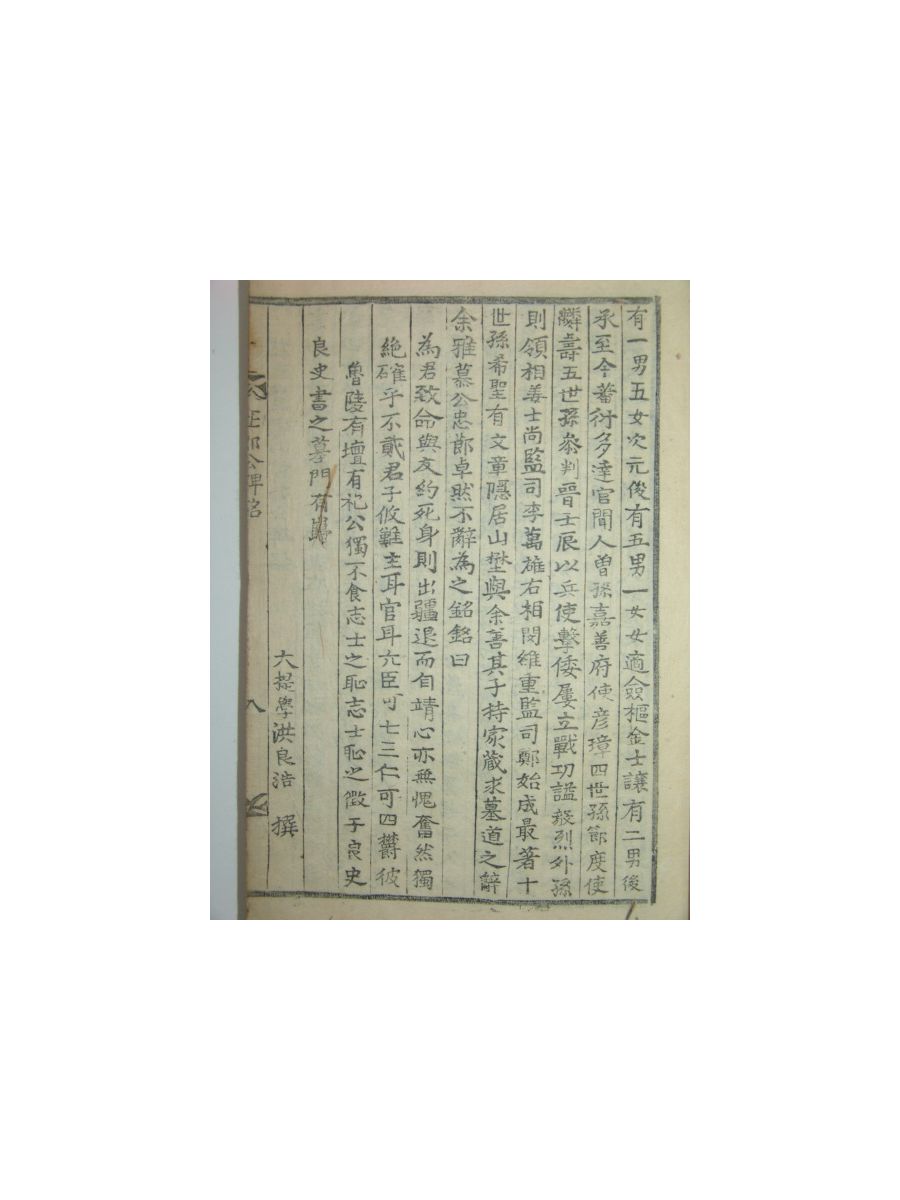 有一男五女次元俊有五男一女女適僉樞金士讓有二男後
承至今蕃衍多達官聞人曾孫嘉善府使彦璋四世孫節度使
麟壽五世孫叅判晉士辰以兵使擊倭屢立戰功謚毅烈外孫
則領相姜士尚監司李萬雄右相閔維重監司鄭始成最著十
世孫希聖有文章隱居山埜與余善其子持家蔵求墓道之辭
余雅慕公忠莭卓然不辭為之銘銘曰
為君致命與友約死身則出疆退而自靖心亦無愧奮然獨
絶確乎不貳君子攸難主耳官耳六臣可七三仁可四欝彼
魯陵有壇有祀公獨不食志士之恥志士恥之徴于良史
良史書之墓門有歸
大提學洪良浩 撰
公碑銘 八